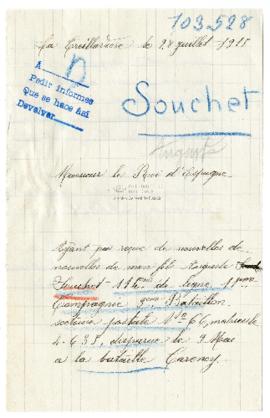 103.528
La Treillardière le 28 juillet 1915
A
Pedir informes
Que se hace Así
Devolver
Souchet
Auguste
Monsieur le Roi d'Espagne
Ayant pas reçue de nouvelles de
nouvelles de mon fils Auguste
Souchet 114 de ligne 11
Compagnie 3 Bataillon
secteur postale 66, matricule
4.635, disparue le 9 Mai
a la bataille Carency